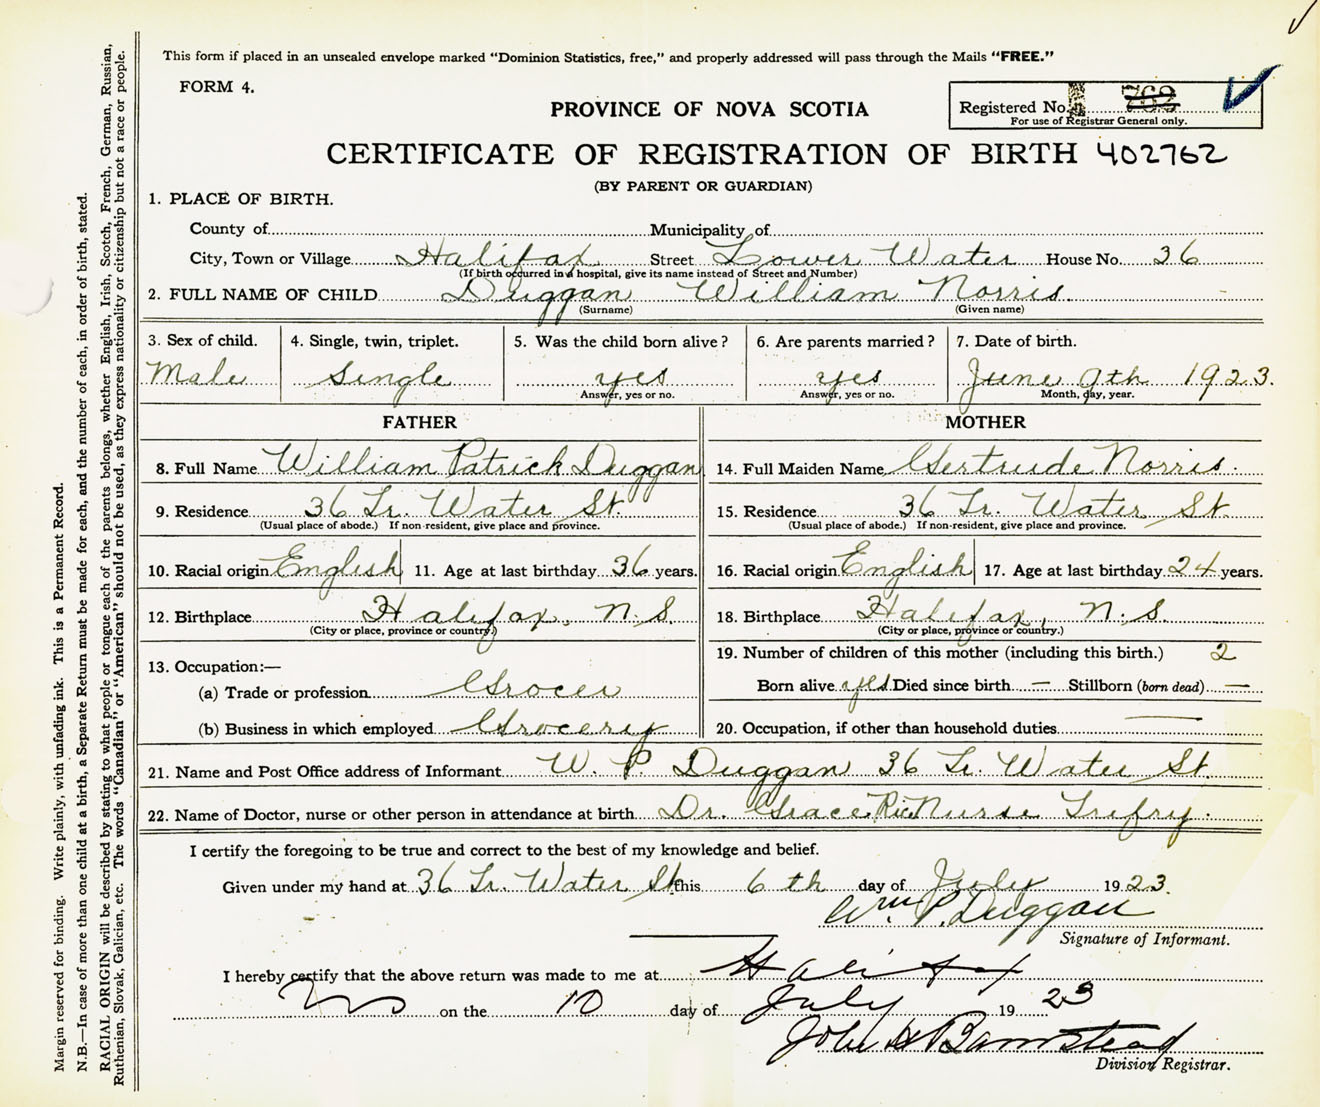 This form if placed in an unsealed envelope marked "Dominion Statistics, free," and properly addressed will pass through the Mails "FREE."
FORM 4.
PROVINCE OF NOVA SCOTIA
Registered No. 762
For use of Registrar General only.
CERTIFICATE OF REGISTRATION OF BIRTH 402762
(BY PARENT OR GUARDIAN)
1. PLACE OF BIRTH.
County of Municipality of
City, Town or Village Halifax Street Lower Water House No. 36
(If birth occurred in a hospital, give its name instead of Street and Number)
2. FULL NAME OF CHILD Duggan William Norris
(Surname) (Given name)
3. Sex of child. 4. Single, twin, triplet. 5. Was the child born alive? 6. Are parents married? 7. Date of birth.
Male Single yes yes June 9th 1923.
Answer, yes or no. Answer, yes or no. Month, day, year.
FATHER MOTHER
8. Full Name William Patrick Duggan 14. Full Maiden Name Gertrude Norris.
9. Residence 36 Lr. Water St. 15. Residence 36 Lr. Water St.
(Usual place of abode.) If non-resident, give place and province. (Usual place of abode.) If non-resident, give place and province.
10. Racial origin English 11. Age at last birthday 36 years. 16. Racial origin English 17. Age at last birthday 24 years.
12. Birthplace Halifax, N.S. 18. Birthplace Halifax, N.S.
(City or place, province or country.) (City or place, province or country.)
13. Occupation:— 19. Number of children of this mother (including this birth.) 2
(a) Trade or profession Grocer Born alive yes Died since birth — Stillborn (born dead) —
(b) Business in which employed Grocery 20. Occupation, if other than household duties —
21. Name and Post Office address of Informant W. P. Duggan 36 Lr. Water St.
22. Name of Doctor, nurse or other person in attendance at birth Dr. Grace Rice Nurse Trefry.
I certify the foregoing to be true and correct to the best of my knowledge and belief.
Given under my hand at 36 Lr. Water St. this 6th day of July 1923.
Wm. P. Duggan
Signature of Informant.
I hereby certify that the above return was made to me at Halifax
NS on the 10 day of July 1923
John H Barnstead
Division Registrar.
Margin reserved for binding. Write plainly, with unfading ink. This is a Permanent Record.
N.B.—In case of more than one child at a birth, a Separate Return must be made for each, and the number of each, in order of birth, stated.
RACIAL ORIGIN will be described by stating to what people or tongue each of the parents belongs, whether English, Irish, Scotch, French, German, Russian,
Ruthenian, Slovak, Galician, etc. The words "Canadian" or "American" should not be used, as they express nationality or citizenship but not a race or people.